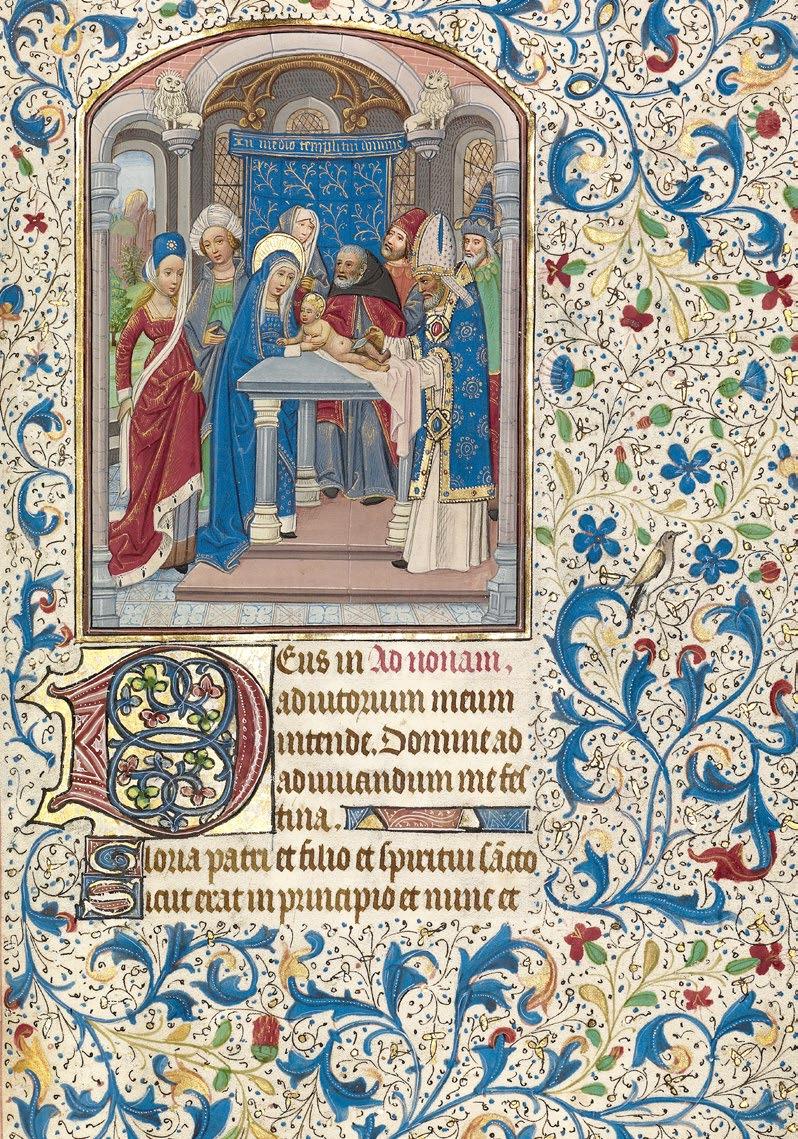 In medio templi tui domine
DEus in Ad nonam.
adiutorium meum
intende. Domine ad
adiuuandum me fes
tina.
Gloria patri et filio et spiritui sãcto
Sicut erat in principio et nunc et